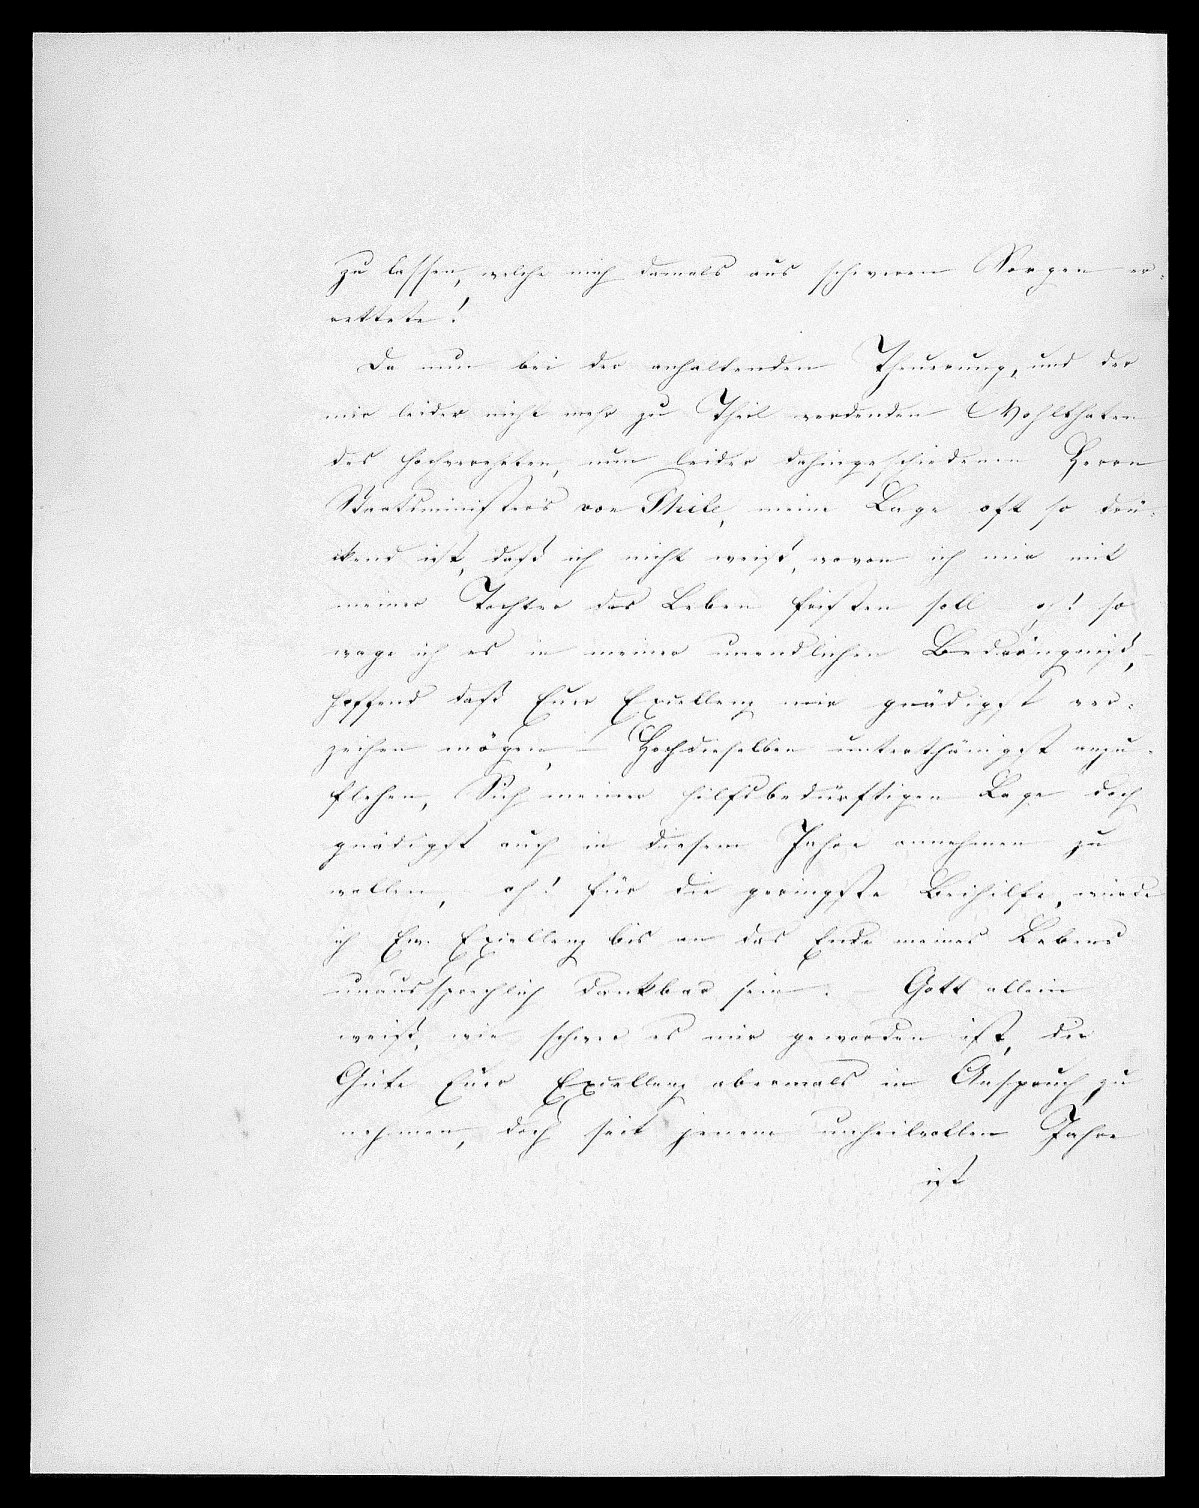 zu lassen, welche mich damals aus schweren Sorgen er-
rettete!
Da nun bei der anhaltenden Theuerung, und der
mir leider nicht mehr zu Theil werdenden Wohlthaten
des hochverehrten, nun leider dahingeschiedenen Herrn
Staatsministers von Thile, meine Lage oft so drü-
ckend ist, daß ich nicht weiß, wovon ich mir mit
meiner Tochter das Leben fristen soll, ach! so
wage ich es in meiner unendlichen Bedrängniß,
hoffend daß Euer Excellenz mir gnädigst ver-
zeihen mögen, – Hochdieselben unterthänigst anzu-
flehen, Sich meiner hilfsbedürftigen Lage doch
gnädigst auch in diesem Jahre annehmen zu
wollen, ach! für die geringste Beihilfe, würde
ich Ew. Excellenz bis an das Ende meines Lebens
unaussprechlich dankbar sein. – Gott allein
weiß, wie schwer es mir geworden ist, die
Güte Euer Excellenz abermals in Anspruch zu
nehmen, doch seit jenem unheilvollen Jahre
ist